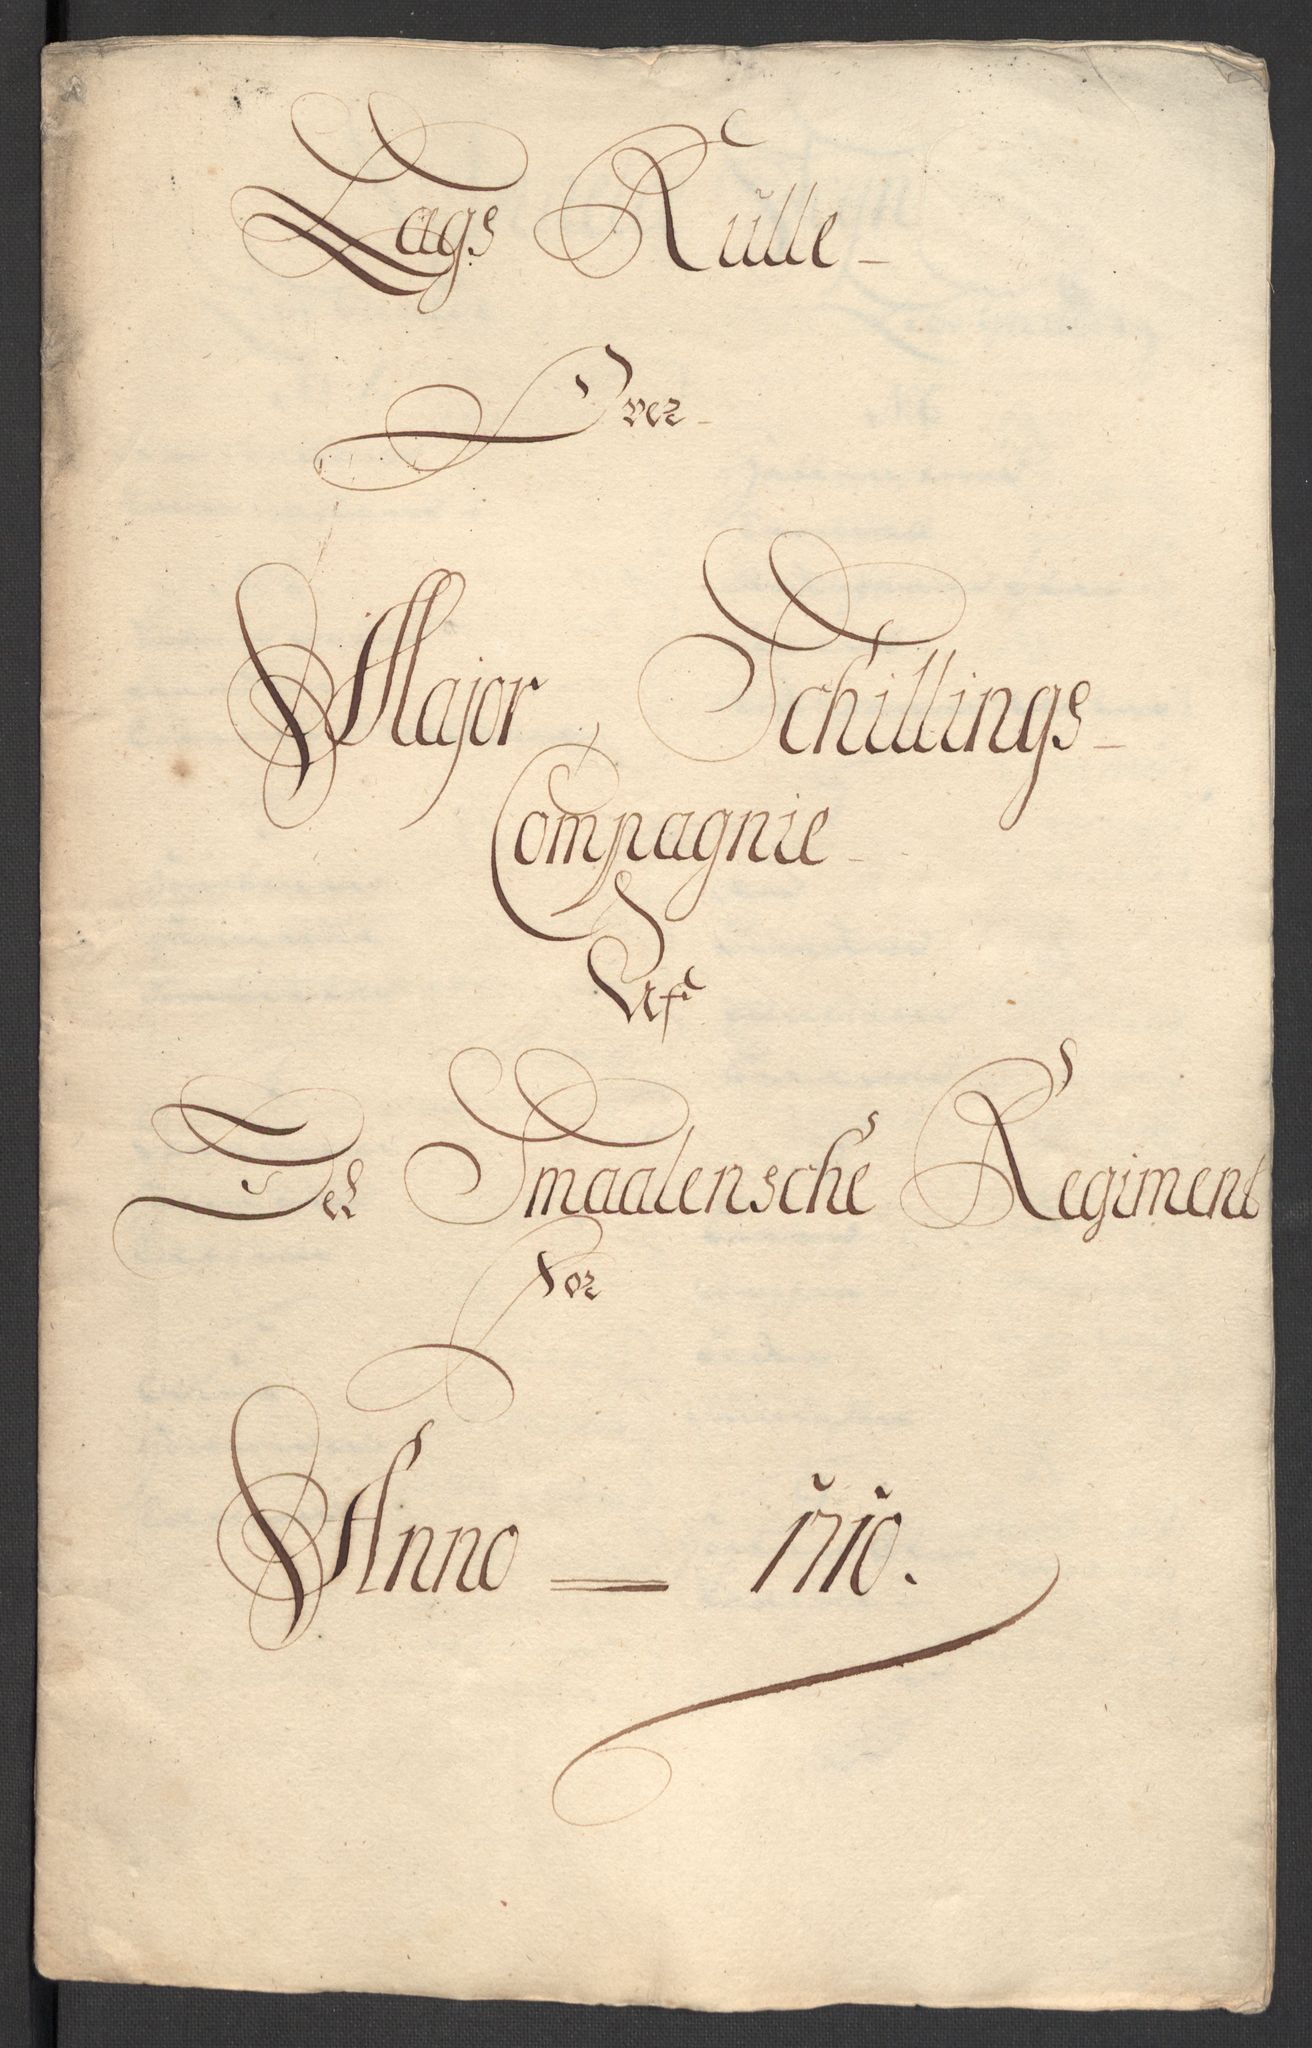 Lags Rulle
Over
Major Schillings
Compagnie
Af
Det Smaalensche Regiment
For
Anno 1710.